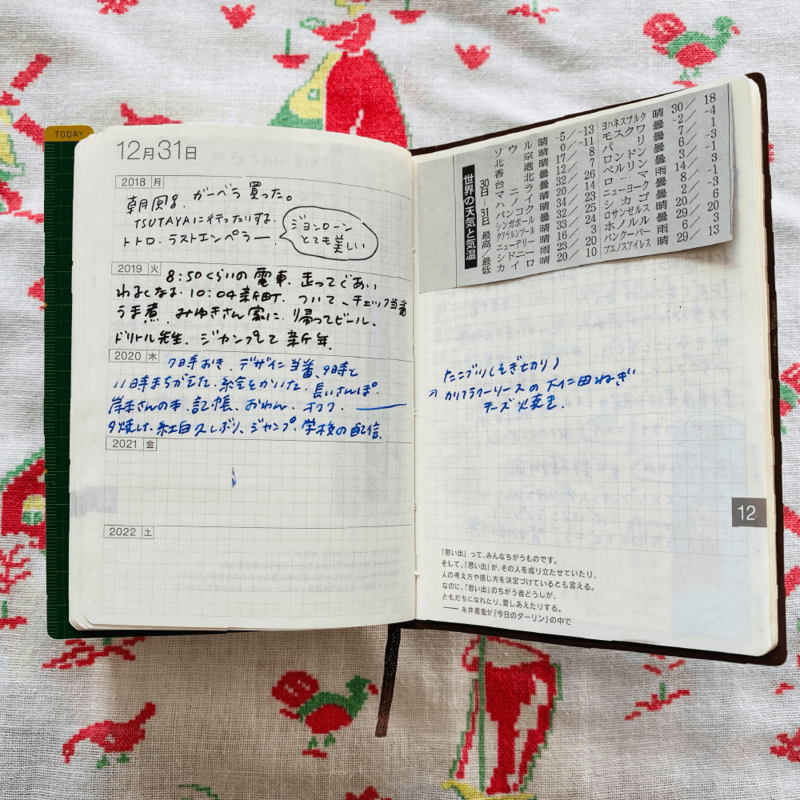 TODAY
12月31日
2018 月
朝風呂、ガーベラ買った。
TSUTAYAに行ったりする
トトロ、ラストエンペラー
ジョンローン
とても美しい
2019 火
8:50くらいの電車、走って
10:04 ついて、チェック当番
みゆきさん家に、帰ってビール、
ドリトル先生、ジャンプして新年
2020 木
7日手おき、デザイン当番、9時と
11日時まちがえた、絵をかいた、長いさんぽ、
岸本さんの本、記帳、おわん、
夕焼け、紅白久しぶり、ジャンプ、学校の配信、
2021 金
2022 土
世界の天気と気温
30日–31日 最高/最低
ソウル 晴 -5/-13
北京 晴 0/-11
香港 曇 17/7
台北 曇 12/8
マニラ
ハノイ
バンコク
シンガポール
クアラルンプール
ニューデリー
シドニー
カイロ 晴 20/10
ヨハネスブルク 晴 30/18
モスクワ 曇 -2/-4
パリ 曇 7/1
ロンドン 曇 6/-3
ベルリン 曇 3/-1
ローマ 雨 14/8
ニューヨーク
シカゴ
ロサンゼルス
ホノルル
バンクーバー
ブエノスアイレス 晴 29/13
たこブツ(そぎ切り)
カリフラワーソースの下仁田ねぎ
チーズ焼き
12
「思い出」って、みんなちがうものです。
そして、「思い出」が、その人を成り立たせていたり、
人の考え方や感じ方を決定づけているとも言える。
なのに、「思い出」のちがう者どうしが、
ともだちになれたり、愛しあえたりする。
――糸井重里が『今日のダーリン』の中で